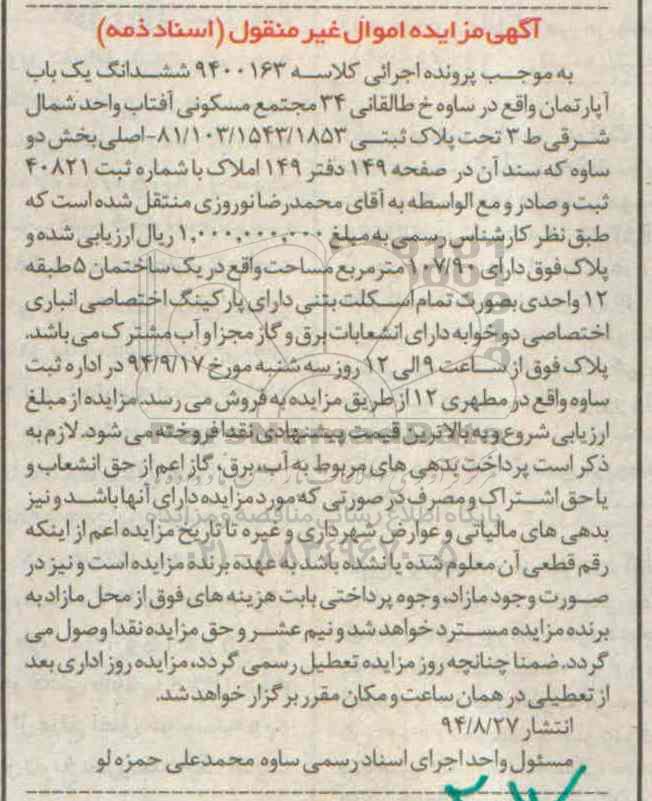 آگهی مزایده اموال غیر منقول (اسناد ذمه)
به موجب پرونده اجرائی کلاسه ۹۴۰۰۱۶۳ ششدانگ یک باب
آپارتمان واقع در ساوه خ طالقانی ۳۴ مجتمع مسکونی آفتاب واحد شمال
شرقی ط ۳ تحت پلاک ثبتی ۸۱/۱۰۳/۱۵۴۳/۱۸۵۳-اصلی بخش دو
ساوه که سند آن در صفحه ۱۴۹ دفتر ۱۴۹ املاک با شماره ثبت ۴۰۸۲۱
ثبت و صادر و مع الواسطه به آقای محمدرضا نوروزی منتقل شده است که
طبق نظر کارشناس رسمی به مبلغ ۱,۰۰۰,۰۰۰,۰۰۰ ریال ارزیابی شده و
پلاک فوق دارای ۱۰۷/۹۰ متر مربع مساحت واقع در یک ساختمان ۵ طبقه
۱۲ واحدی بصورت تمام اسکلت بتنی دارای پارکینگ اختصاصی انباری
اختصاصی دو خوابه دارای انشعابات برق و گاز مجزا و آب مشترک می باشد.
پلاک فوق از ساعت ۹ الی ۱۲ روز سه شنبه مورخ ۹۴/۹/۱۷ در اداره ثبت
ساوه واقع در مطهری ۱۲ از طریق مزایده به فروش می رسد. مزایده از مبلغ
ارزیابی شروع و به بالاترین قیمت پیشنهادی نقدا فروخته می شود. لازم به
ذکر است پرداخت بدهی های مربوط به آب، برق، گاز اعم از حق انشعاب و
یا حق اشتراک و مصرف در صورتی که مورد مزایده دارای آنها باشد و نیز
بدهی های مالیاتی و عوارض شهرداری و غیره تا تاریخ مزایده اعم از اینکه
رقم قطعی آن معلوم شده یا نشده باشد به عهده برنده مزایده است و نیز در
صورت وجود مازاد، وجوه پرداختی بابت هزینه های فوق از محل مازاد به
برنده مزایده مسترد خواهد شد و نیم عشر و حق مزایده نقدا وصول می
گردد. ضمنا چنانچه روز مزایده تعطیل رسمی گردد، مزایده روز اداری بعد
از تعطیلی در همان ساعت و مکان مقرر برگزار خواهد شد.
انتشار ۹۴/۸/۲۷
مسئول واحد اجرای اسناد رسمی ساوه محمدعلی حمزه لو
پایگاه اطلاع رسانی مناقصه و مزایده
۰۲۱-۸۸۳۴۹۶۷۰-۵